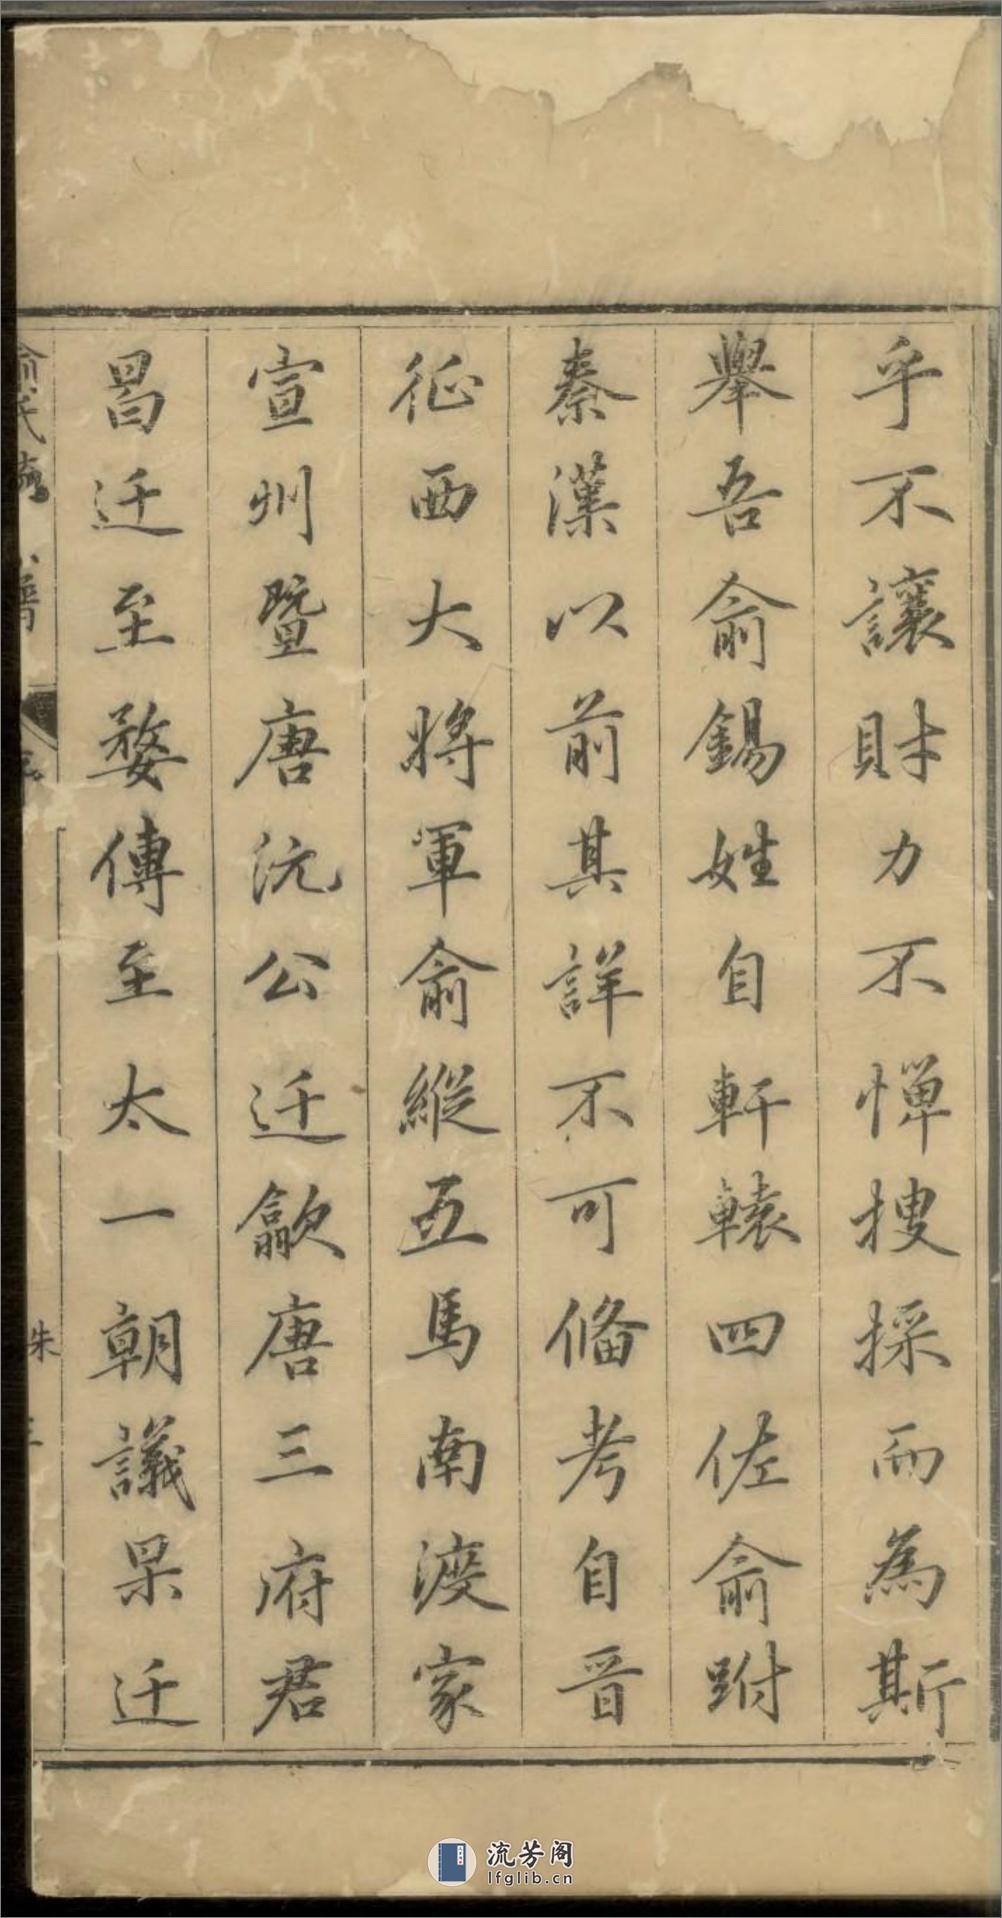 乎不讓財力不惮搜採而為斯
舉吾俞錫姓自軒轅四佐俞跗
秦漢以前其詳不可俻考自晋
征西大将軍俞縱五馬南渡家
宣州暨唐沅公迁歙唐三府君
昌迁至婺傳至太一朝議杲迁
俞氏 譜
朱
流芳阁
lfglib.cn